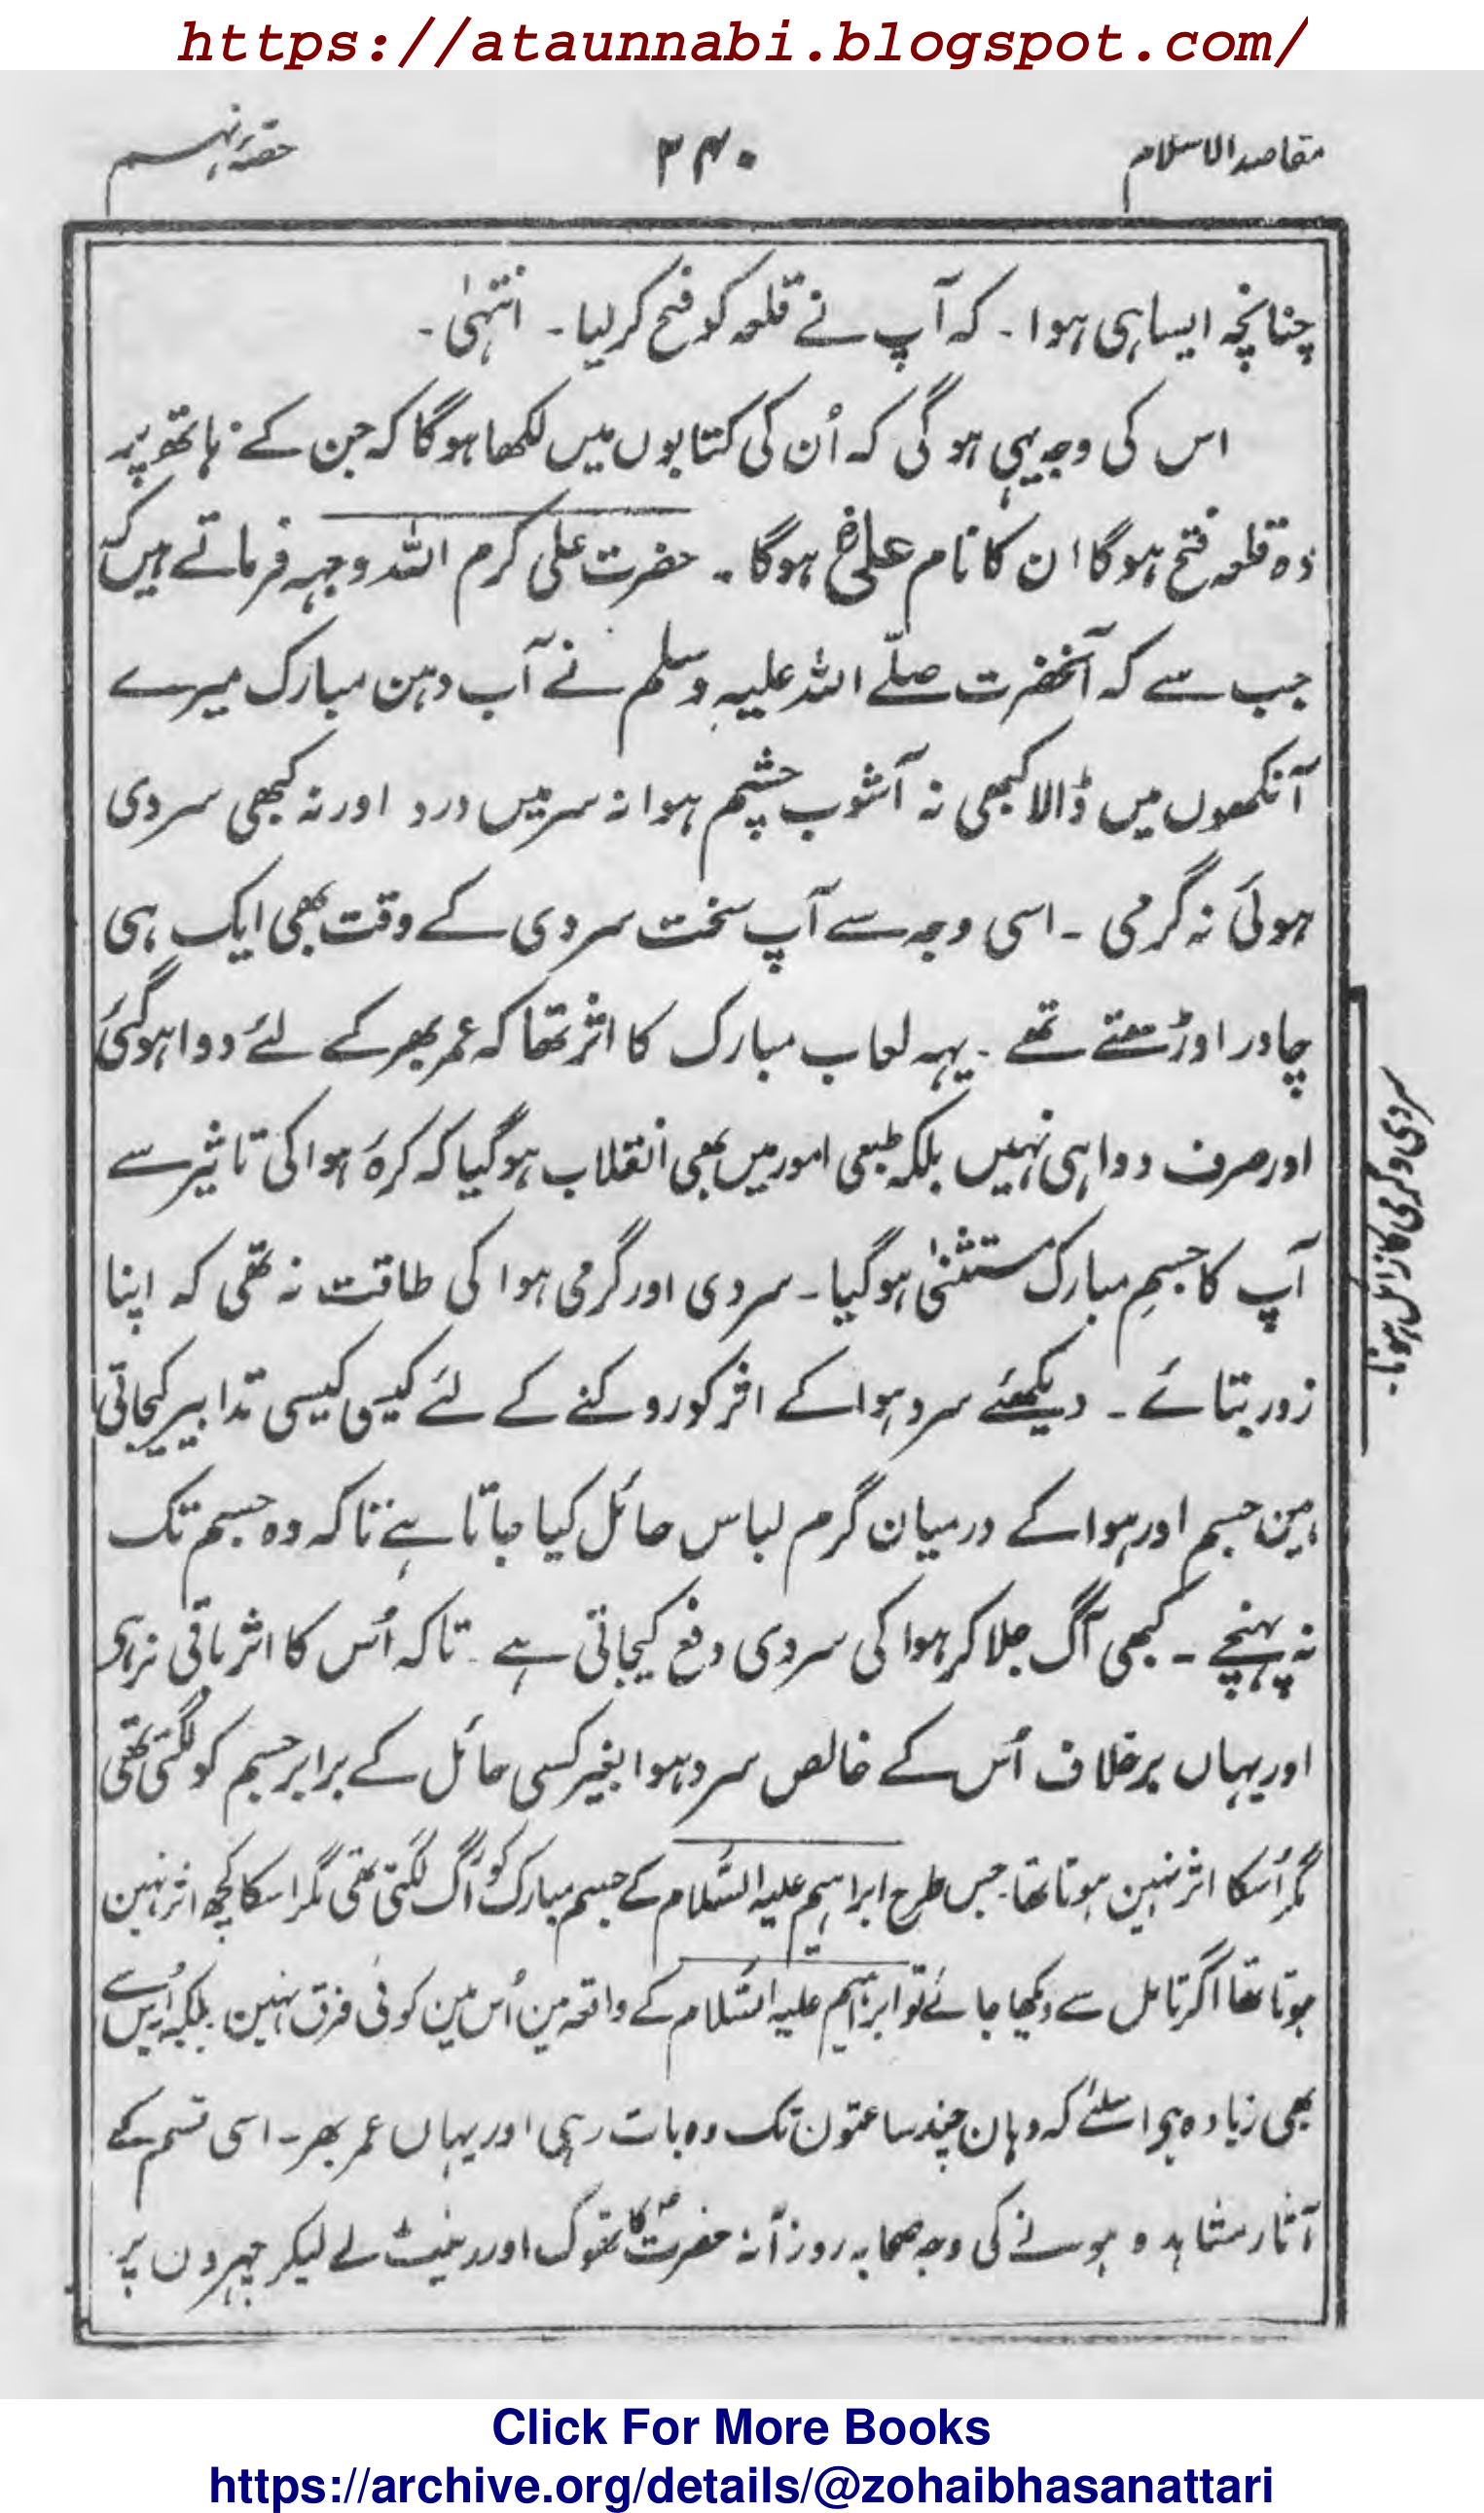 https://ataunnabi.blogspot.com/
مقاصد الاسلام
۲۴۰
حصّۂ نہم
چنانچہ ایسا ہی ہوا ۔ کہ آپ نے قلعہ کو فتح کرلیا ۔ انتہٰی ۔
اس کی وجہ یہی ہو گی کہ اُن کی کتابوں میں لکھا ہو گا کہ جن کے ہاتھ پر
وہ قلعہ فتح ہو گا ان کا نام علیؓ ہو گا ۔ حضرت علی کرم اللہ وجہہ فرماتے ہیں کہ
جب سے کہ آنحضرت صلّے اللہ علیہ وسلم نے آب دہن مبارک میرے
آنکھوں میں ڈالا کبھی نہ آشوب چشم ہوا نہ سر میں درد اور نہ کبھی سردی
ہوئی نہ گرمی ۔ اسی وجہ سے آپ سخت سردی کے وقت بھی ایک ہی
چادر اوڑھتے تھے ۔ یہہ لعاب مبارک کا اثر تھا کہ عمر بھر کے لئے دوا ہو گئی
اور صرف دوا ہی نہیں بلکہ طبعی امور میں بھی انقلاب ہو گیا کہ کرۂ ہوا کی تاثیر سے
آپ کا جسمِ مبارک مستثنٰی ہو گیا ۔ سردی اور گرمی ہوا کی طاقت نہ تھی کہ اپنا
زور بتائے ۔ دیکھئے سرد ہوا کے اثر کو روکنے کے لئے کیسی کیسی تدابیر کیجاتی
ہین جسم اور ہوا کے درمیان گرم لباس حائل کیا جاتا ہے تاکہ وہ جسم تک
نہ پہنچے ۔ کبھی آگ جلا کر ہوا کی سردی دفع کیجاتی ہے ۔ تاکہ اُس کا اثر باقی نہ رہے
اور یہاں برخلاف اُس کے خالص سرد ہوا بغیر کسی حائل کے برابر جسم کو لگتی تھی
مگر اُسکا اثر نہین ہوتا تھا جس طرح ابراہیم علیہ السّلام کے جسم مبارک کو آگ لگتی تھی مگر اسکا کچھ اثر نہین
ہوتا تھا اگر تامل سے دیکھا جائے تو ابراہیم علیہ السّلام کے واقعہ مین اُس مین کوئی فرق نہین بلکہ اُس سے
بھی زیادہ ہے اسلئے کہ وہان چند ساعتون تک وہ بات رہی اور یہاں عمر بھر ۔ اسی قسم کے
آثار مشاہدہ ہونے کی وجہ صحابہ روزانہ حضرت کا تھوک اور رینٹ لے لیکر چہروں پر
سردی و گرمی کا اثر
Click For More Books
https://archive.org/details/@zohaibhasanattari